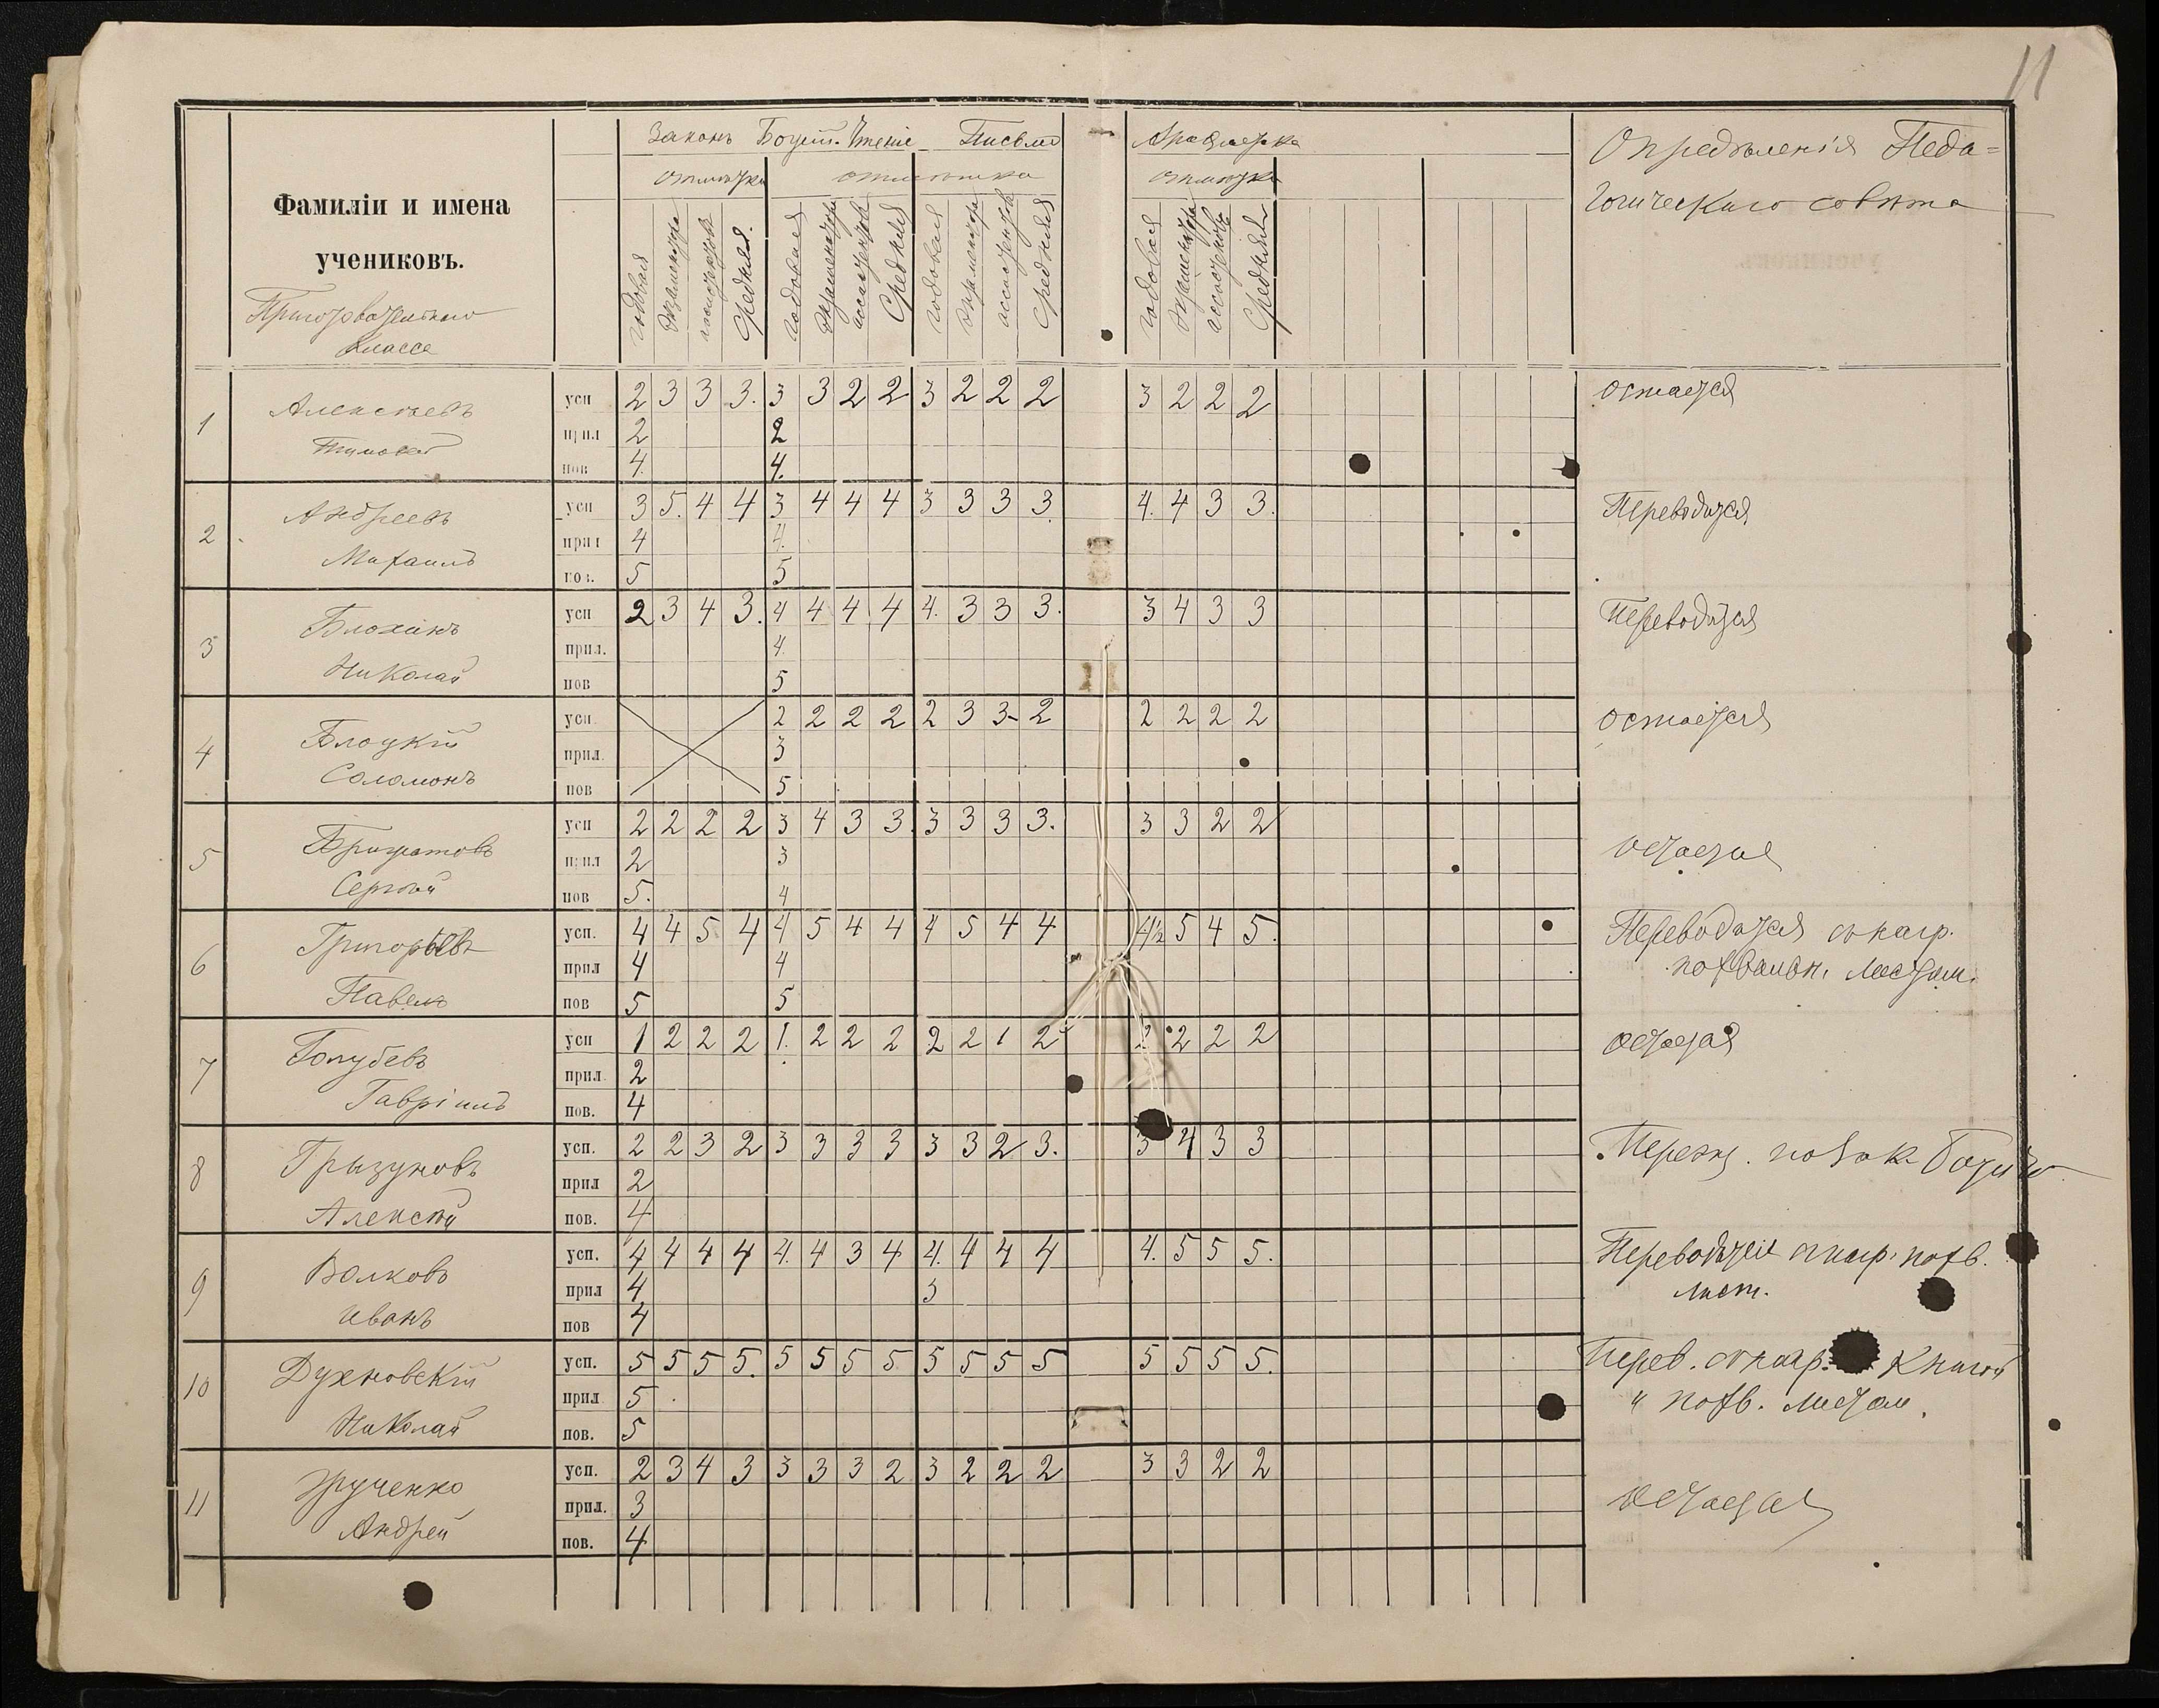 11
Законъ Божій. Чтеніе Письмо Арѳметика
Опредѣленія Педа=
гогическаго совѣта
отмѣтки отмѣтка отмѣтки
Фамиліи и имена
учениковъ.
Приготовительнаго
класса
годовая экзаменатора ассистентовъ средняя. годовая экзаменатора ассистентовъ средняя годовая экзаменатора ассистентовъ средняя годовая экзаменатора ассистентовъ средняя
1 Алексѣевъ усп 2 3 3 3. 3 3 2 2 3 2 2 2 3 2 2 2 остается
Тимофей прил 2 2
пов 4. 4.
2 Андреевъ усп 3 5. 4 4 3 4 4 4 3 3 3 3 4. 4 3 3. Переводится
Михаилъ прил 4 4.
пов. 5 5
3 Блохинъ усп 2 3 4 3. 4 4 4 4 4. 3 3 3. 3 4 3 3 Переводится
Николай прил. 4.
пов 5
4 Блоцкій усп. 2 2 2 2 2 3 3 2 2 2 2 2 остается
Соломонъ прил. 3
пов 5
5 усп 2 2 2 2 3 4 3 3. 3 3 3 3. 3 3 2 2 остается
Сергѣй прил 2 3
пов 5. 4
6 Григорьевъ усп. 4 4 5 4 4 5 4 4 4 5 4 4 4½ 5 4 5. Переводится съ нагр.
Павелъ прил 4 4 похвальн. листом.
пов 5 5
7 Голубевъ усп 1 2 2 2 1. 2 2 2 2 2 1 2 2 2 2 2 остается
Гавріилъ прил. 2
пов. 4
8 Грызуновъ усп. 2 2 3 2 3 3 3 3 3 3 2 3. 3 4 3 3 Переэкз. по Зак. Божію
Алексѣй прил 2
пов. 4
9 Волковъ усп. 4 4 4 4 4. 4 3 4 4. 4 4 4 4. 5 5 5. Переводится съ нагр. похв.
Иванъ прил 4 3 лист.
пов 4
10 Духновскій усп. 5 5 5 5. 5 5 5 5 5 5 5 5 5 5 5 5. Перев. съ нагр. Книгой
Николай прил 5 и похв. листом.
пов. 5
11 усп. 2 3 4 3 3 3 3 2 3 2 2 2 3 3 2 2 остается
Андрей прил. 3
пов. 4